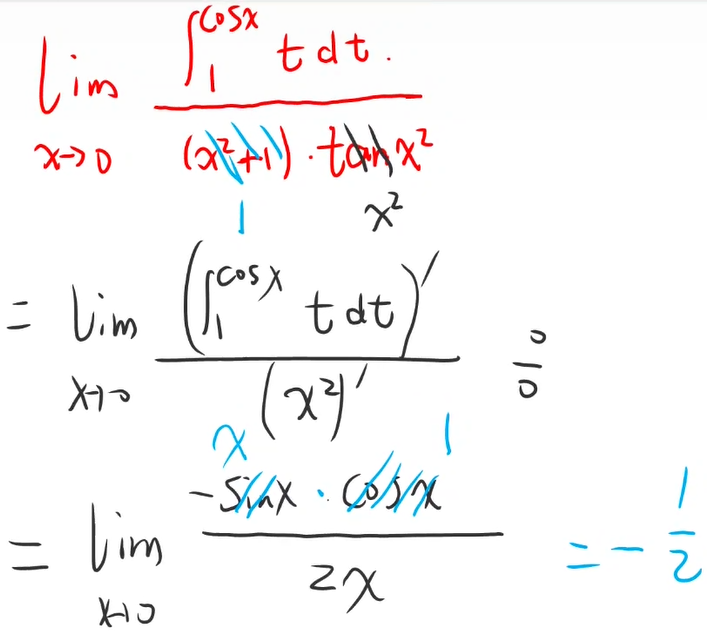 lim x→0 ∫₁^cosx t dt. / (x²+1)·tan x²
1 x²
= lim x→0 (∫₁^cosx t dt)′ / (x²)′ 0/0
x 1
= lim x→0 -sinx·cosx / 2x = -1/2